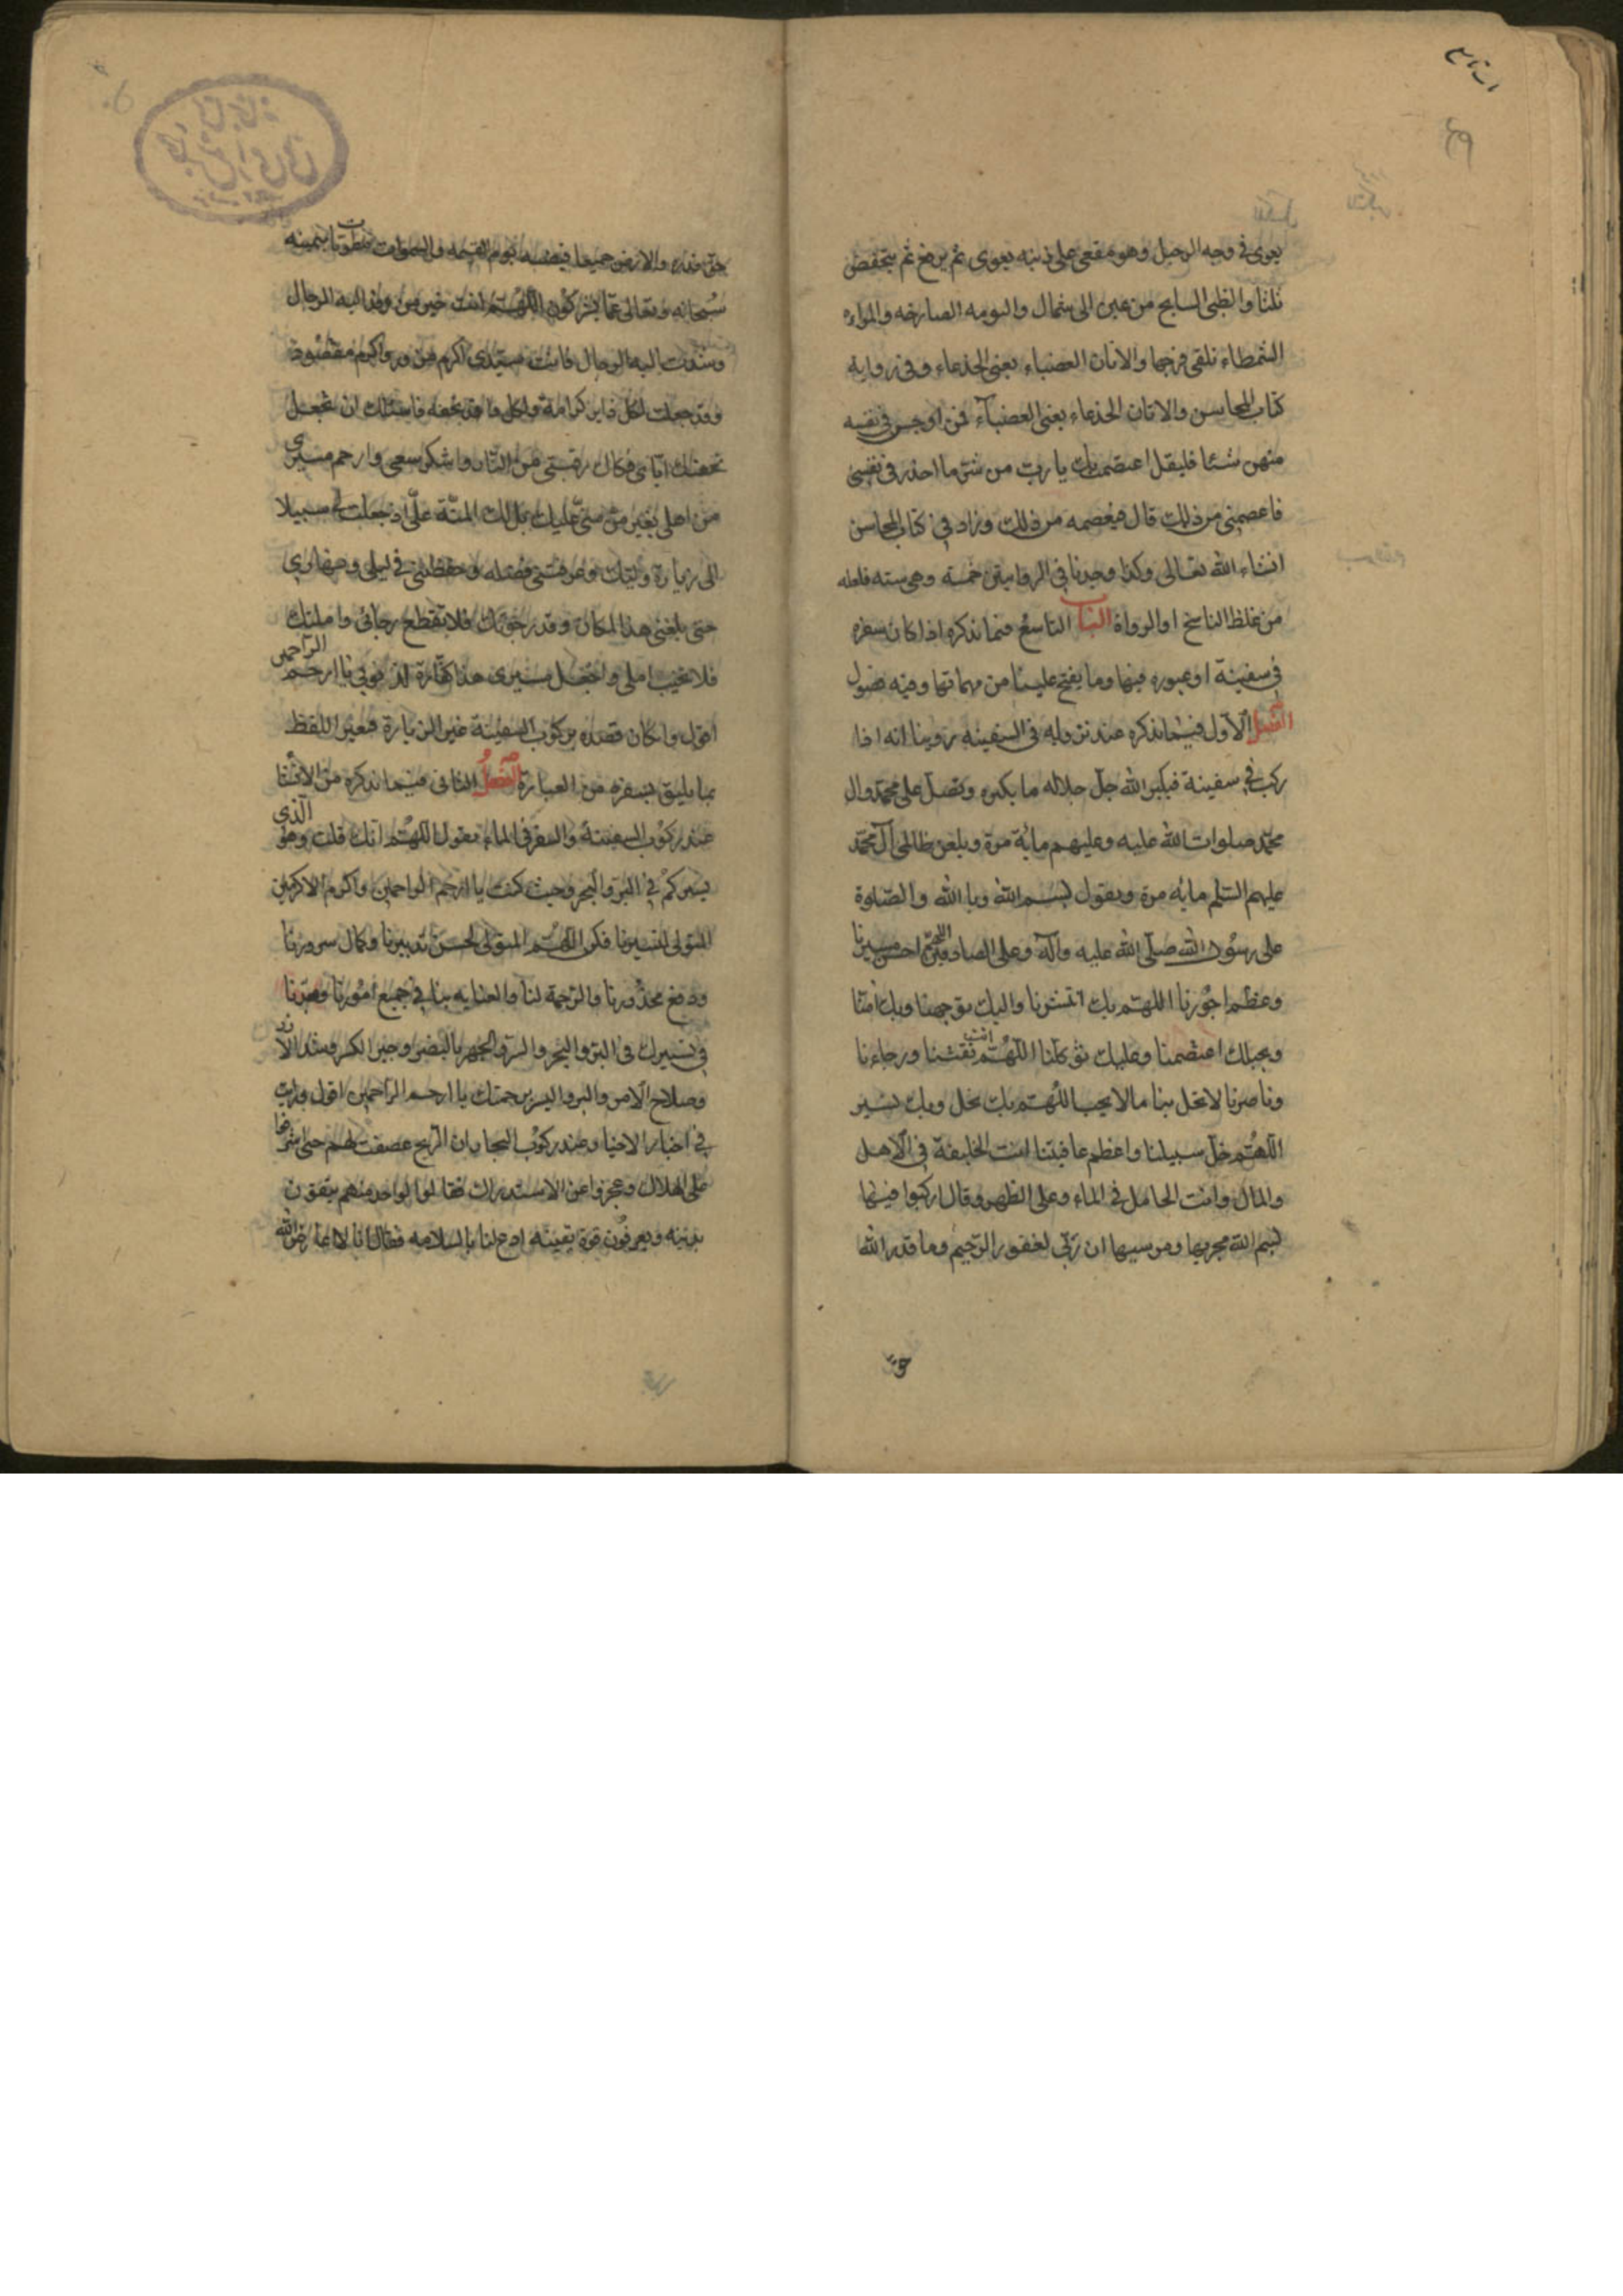 يعوى فى وجه الرجل وهو مقعى على ذنبه يعوى ثم يرتفع ثم ينخفض
ثلثا والظبى السانح من يمين الى شمال والبومه الصارخه والمراءه
الشمطاء تلقى فرجها والاتان العضباء يعنى الجذعاء وفى رواية
كتاب المحاسن والاتان الجذعاء يعنى العضباء فمن اوجس فى نفسه
منهن شيئا فليقل اعتصمت بك يا رب من شر ما اجد فى نفسى
فاعصمنى من ذلك قال فيعصمه من ذلك وزاد فى كتاب المحاسن
انشاء الله تعالى وكذا وجدنا فى الروايتين خمسة وهى سته فلعله
من غلط الناسخ او الرواة الباب التاسع فيما نذكره اذا كان سفره
فى سفينة او عبوره فيها وما يفتح علينا من مهماتها وفيه فصول
الفصل الاول فيما نذكره عند نزوله فى السفينه روينا انه اذا
ركب فى سفينة فيكبر الله جل جلاله مايه تكبيره ويصل على محمد وال
محمد صلوات الله عليه وعليهم ماية مرة ويلعن ظالمى آل محمد
عليهم السلم مايه مرة ويقول بسم الله وبا الله والصلوة
على رسول الله صلى الله عليه وآله وعلى الصادقين اللهم احسن مسيرنا
وعظم اجورنا اللهم بك انتشرنا واليك توجهنا وبك آمنا
وبحبلك اعتصمنا وعليك توكلنا اللهم انت ثقتنا ورجاءنا
وناصرنا لا تحل بنا ما لا يحب اللهم بك نحل وبك نسير
اللهم خل سبيلنا واعظم عافيتنا انت الخليفة فى الاهل
والمال وانت الحامل فى الماء وعلى الظهر وقال اركبوا فيها
بسم الله مجريها ومرسيها ان ربى لغفور الرحيم وما قدر الله
حق
حق قدره والارض جميعا قبضته يوم القيمه والسموات مطويات بيمينه
سبحانه وتعالى عما يشركون اللهم انت خير من وفد اليه الرجال
وشدت اليه الرحال فانت سيدى اكرم مزور واكرم مقصود
وقد جعلت لكل زاير كرامة ولكل وافد تحفه فاسئلك ان تجعل
تحفتك اياى فكاك رقبتى من النار واشكر سعى وارحم مسيرى
من اهلى بغير من منى عليك بل لك المنة على اذ جعلت لى سبيلا
الى زيارة وليك وعرفتنى فضله وحفظتنى فى ليلى ونهارى
حتى بلغتنى هذا المكان وقد رجوتك فلا تقطع رجائى واملتك
فلا تخيب املى واجعل مسيرى هذا كفارة لذنوبى يا ارحم الراحمين
اقول وان كان قصده بركوب السفينة غير الزيارة فيغير اللفظ
بما يليق بسفره من العبارة الفصل الثانى فيما نذكره من الانشا
عند ركوب السفينة والسفر فى الماء تقول اللهم انك قلت وهو الذى
يسيركم فى البر والبحر وحيث كنت يا ارحم الراحمين واكرم الاكرمين
المتولى لتسيرنا فكن اللهم المتولى لحسن تدبيرنا وكمال سرورنا
ودفع محذورنا والرحمة لنا والعنايه بنا فى جميع امورنا
فى تسييرك فى البر والبحر والسر والجهر بالنصر وجبر الكسر وشد الازر
وصلاح الامر والبر واليسر برحمتك يا ارحم الراحمين اقول ورايت
فى اخبار الاخيار عند ركوب البحار ان الريح عصفت بهم حتى اشرفوا
على الهلاك وعجزوا عن الاستدراك فقالوا لواحد منهم يثقون
بدينه ويعرفون قوة يقينه ادع لنا بالسلامه فقال انا لا اعارض الله